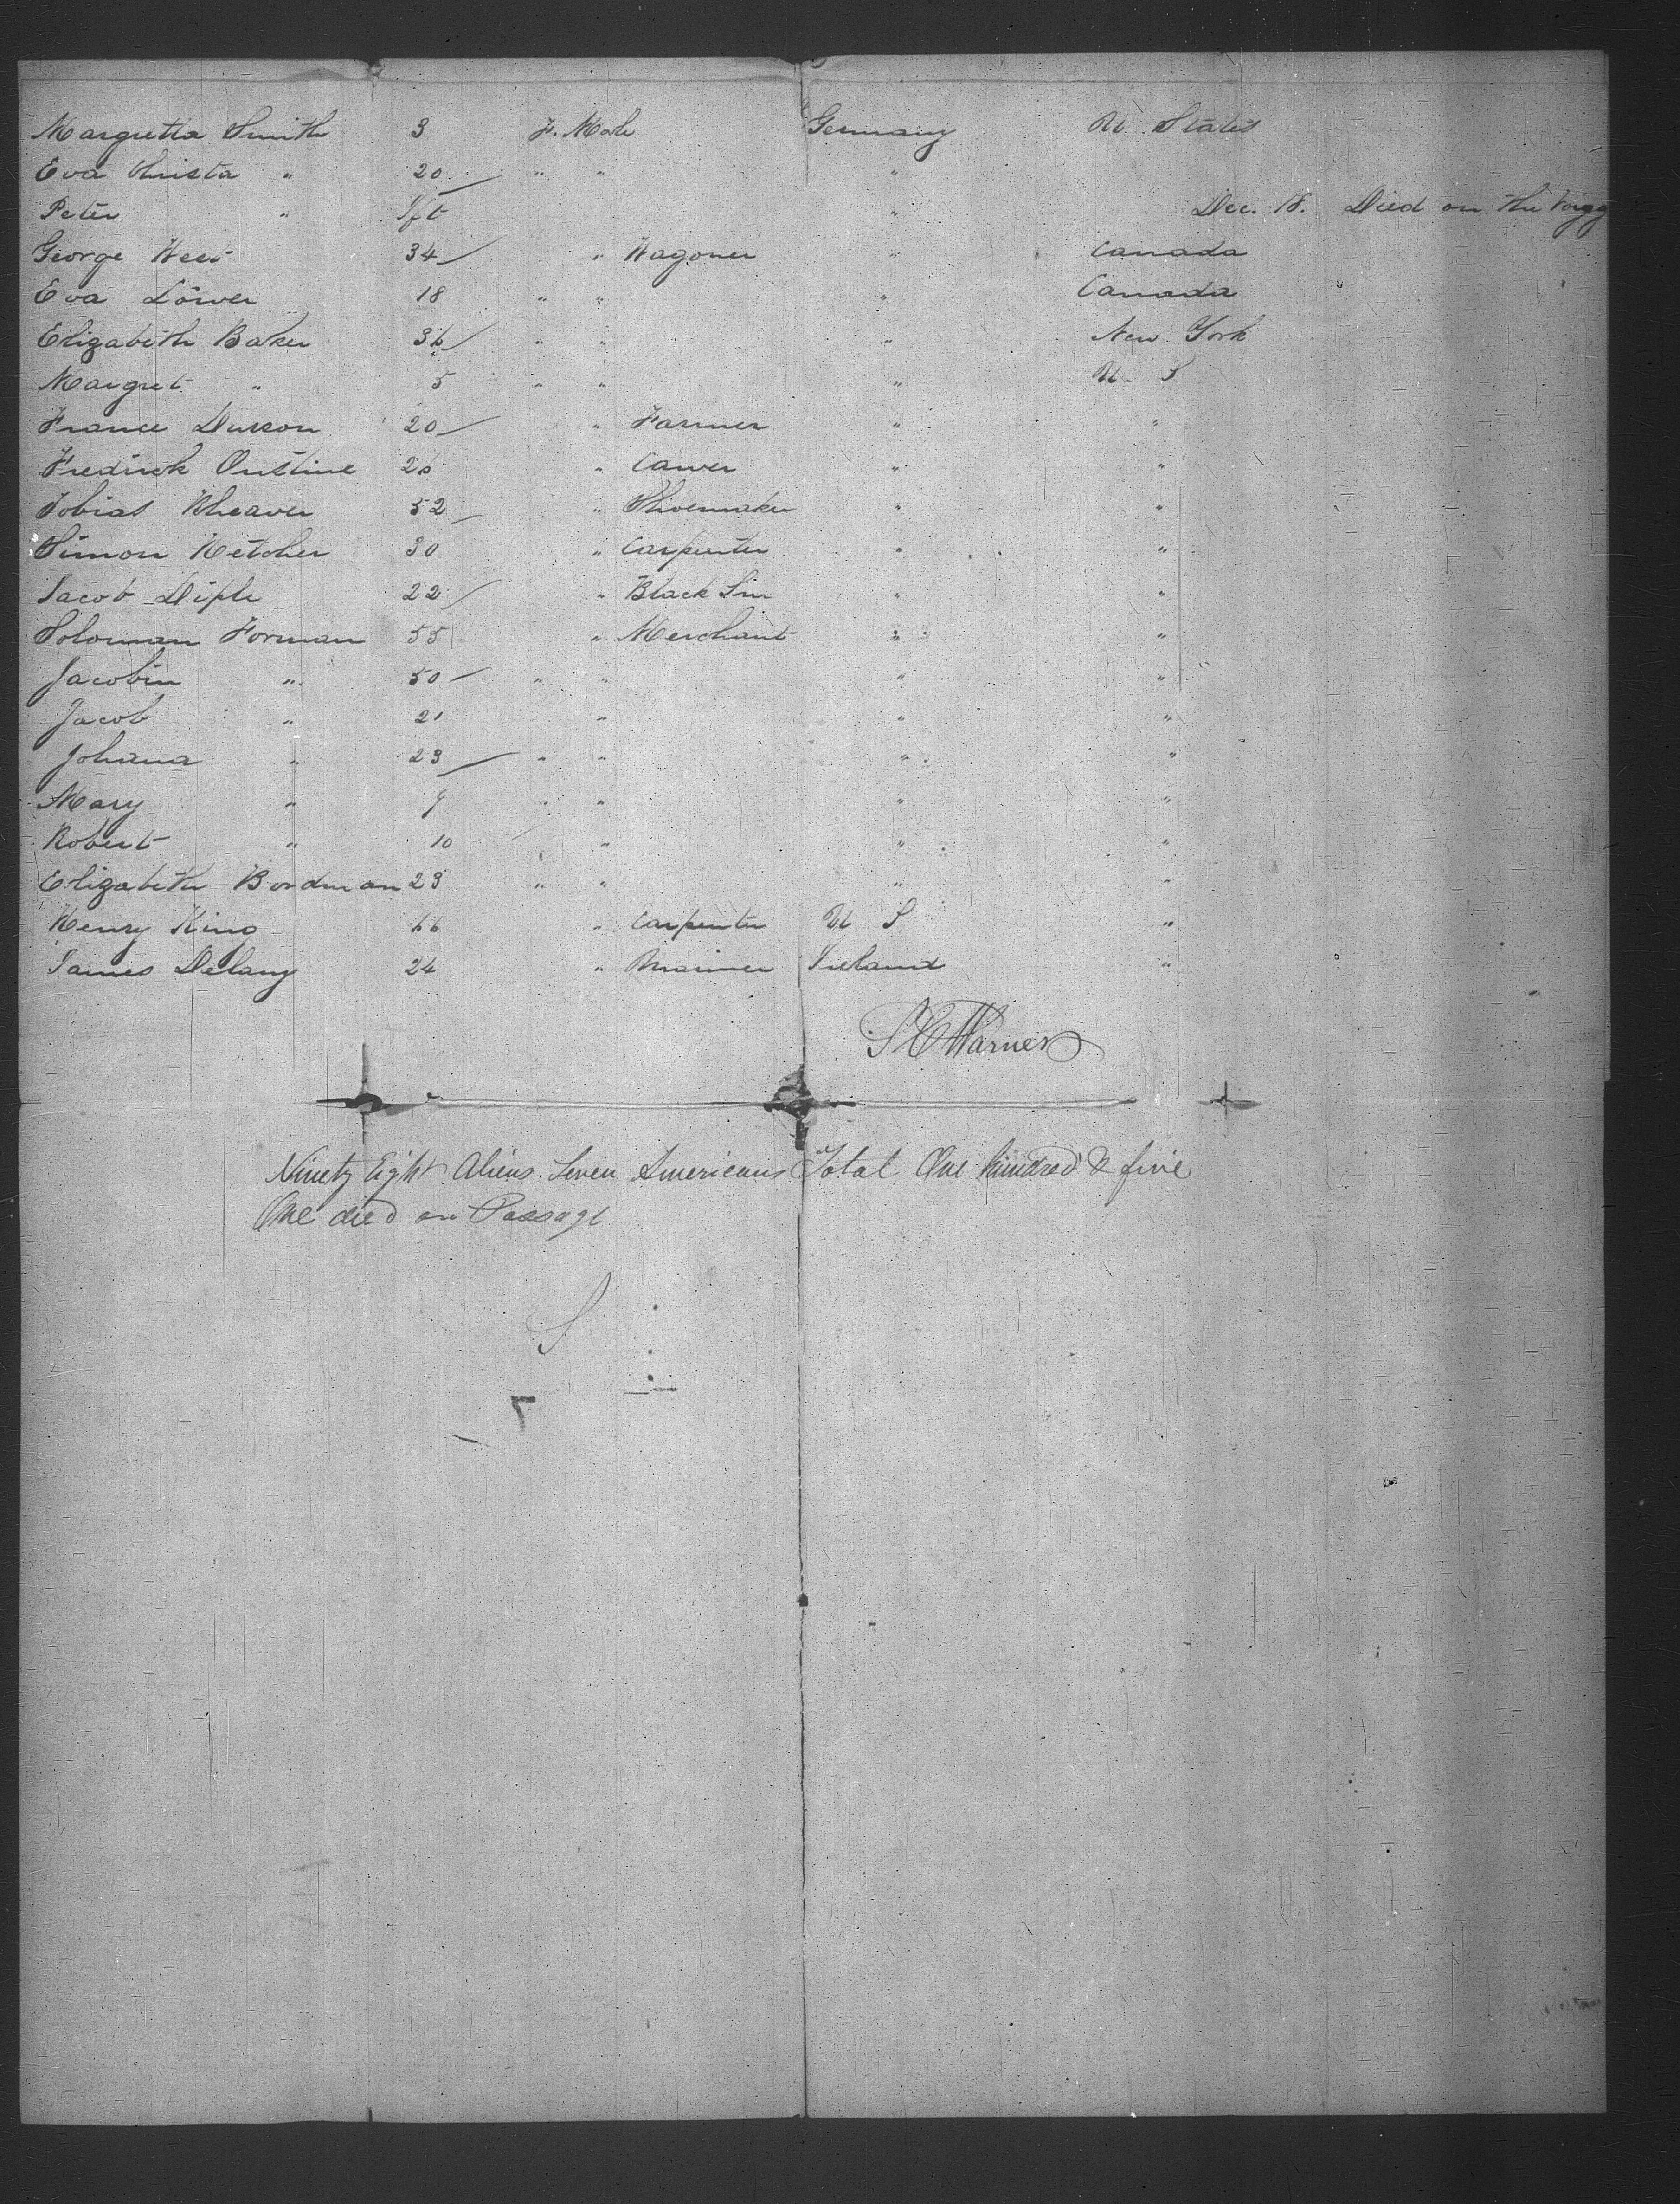 Margretta Smith 3 F. Male Germany U. States
Eva Christa " 20 " " "
Peter " Ift " Dec. 18. Died on the Voyg
George Hess 34 " Wagoner " Canada
Eva Löwer 18 " " " Canada
Elizabeth Baker 36 " " " New York
Margret " 5 " " " U. S
France Duxson 20 " Farmer " "
Fredirck Oustine 26 " Carver " "
Tobias Rheaver 52 " Shoemaker " "
Simon Ketcher 30 " Carpenter " "
Jacob Diple 22 " Black Sm " "
Soloman Forman 55 " Merchant " "
Jacobin " 50 " " " "
Jacob " 21 " " "
Johana " 23 " " " "
Mary " 9 " " " "
Robert " 10 " " "
Elizabeth Bordman 23 " " " "
Henry King 66 " Carpenter U S "
James Delany 24 " Mariner Ireland "
S C Warner
Ninety Eight Aliens Seven Americans Total One hundred & five
One died on Passage
S
7